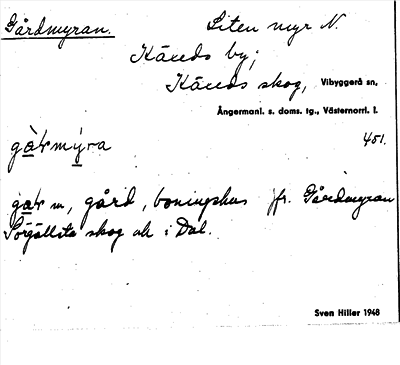 Gårdmyran. Liten myr N.
Käxeds by;
Käxeds skog, Vibyggerå sn,
Ångermanl. s. doms. tg., Västernorrl. l.
gàrmýra 451.
gàr m, gård, boningshus jfr. Gårdmyran
Sörgällsta skog ok i Dal.
Sven Hiller 1948